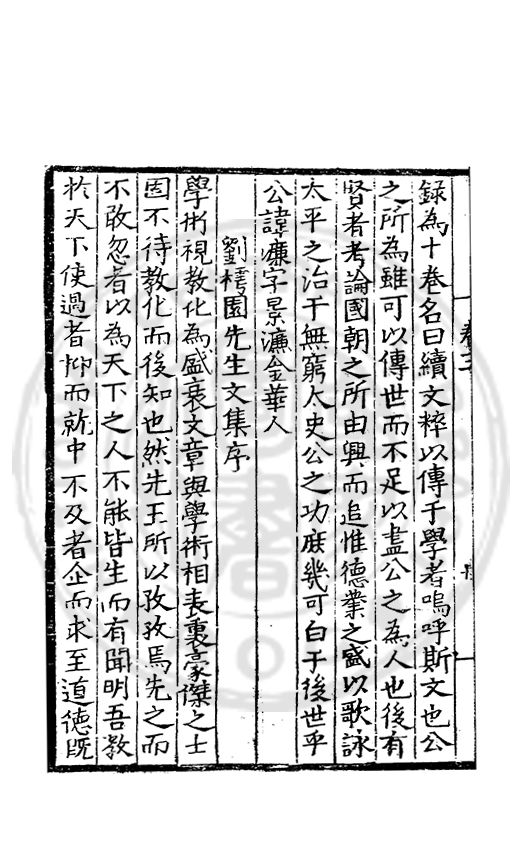 錄為十卷名曰續文粹以傳于學者嗚呼斯文也公
之所為雖可以傳世而不足以盡公之為人也後有
賢者考論國朝之所由興而追惟德業之盛以歌詠
太平之治于無窮太史公之功庶幾可白于後世乎
公諱濂字景濂金華人
劉樗園先生文集序
學術視教化為盛衰文章與學術相表裏豪傑之士
固不待教化而後知也然先王所以孜孜焉先之而
不敢忽者以為天下之人不能皆生而有聞明吾教
於天下使過者抑而就中不及者企而求至道德既